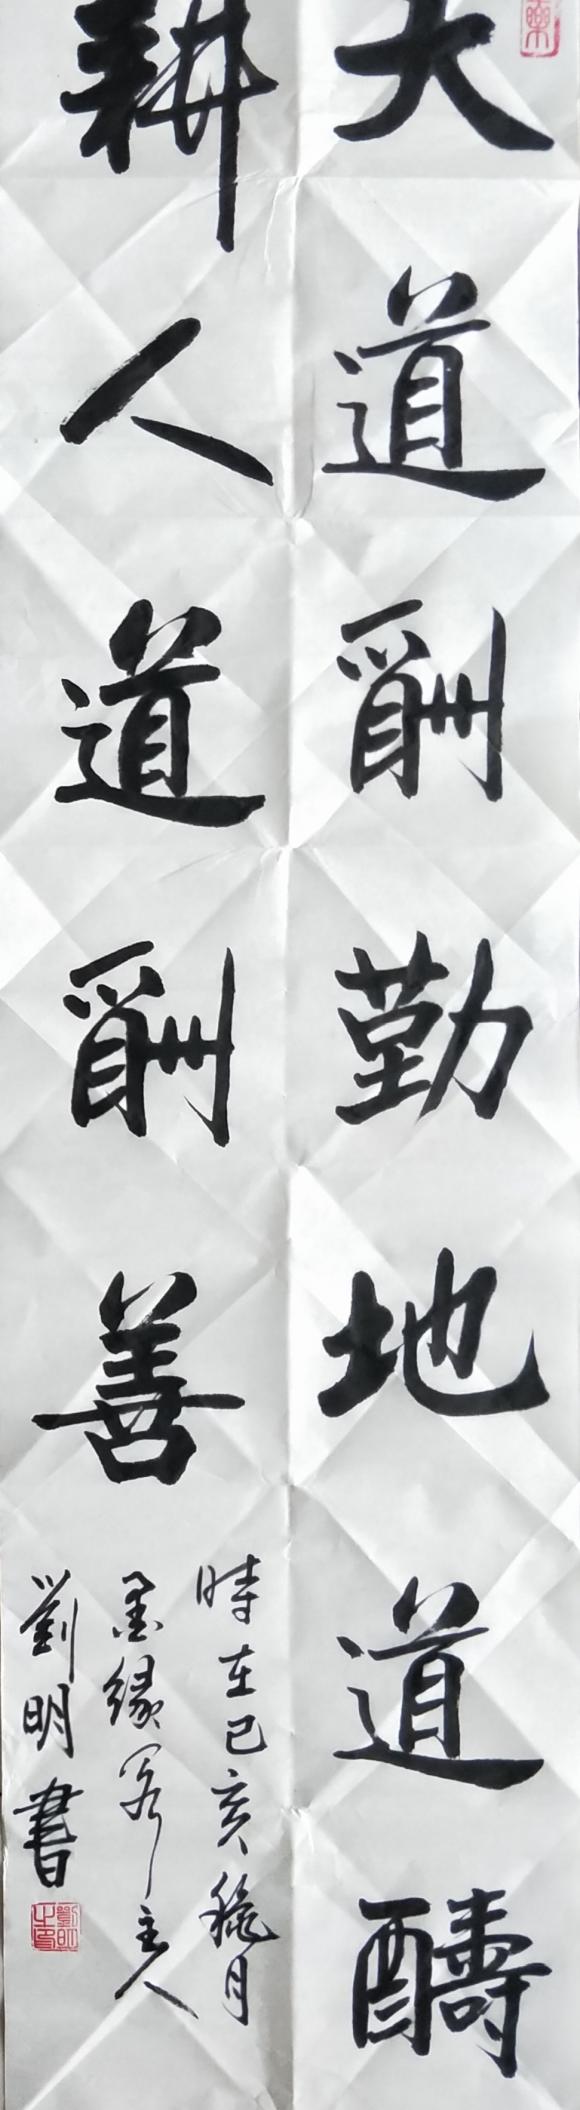 天道酬勤地道醻
耕人道酬善
時在己亥穐月
墨緣齋主人
劉明書